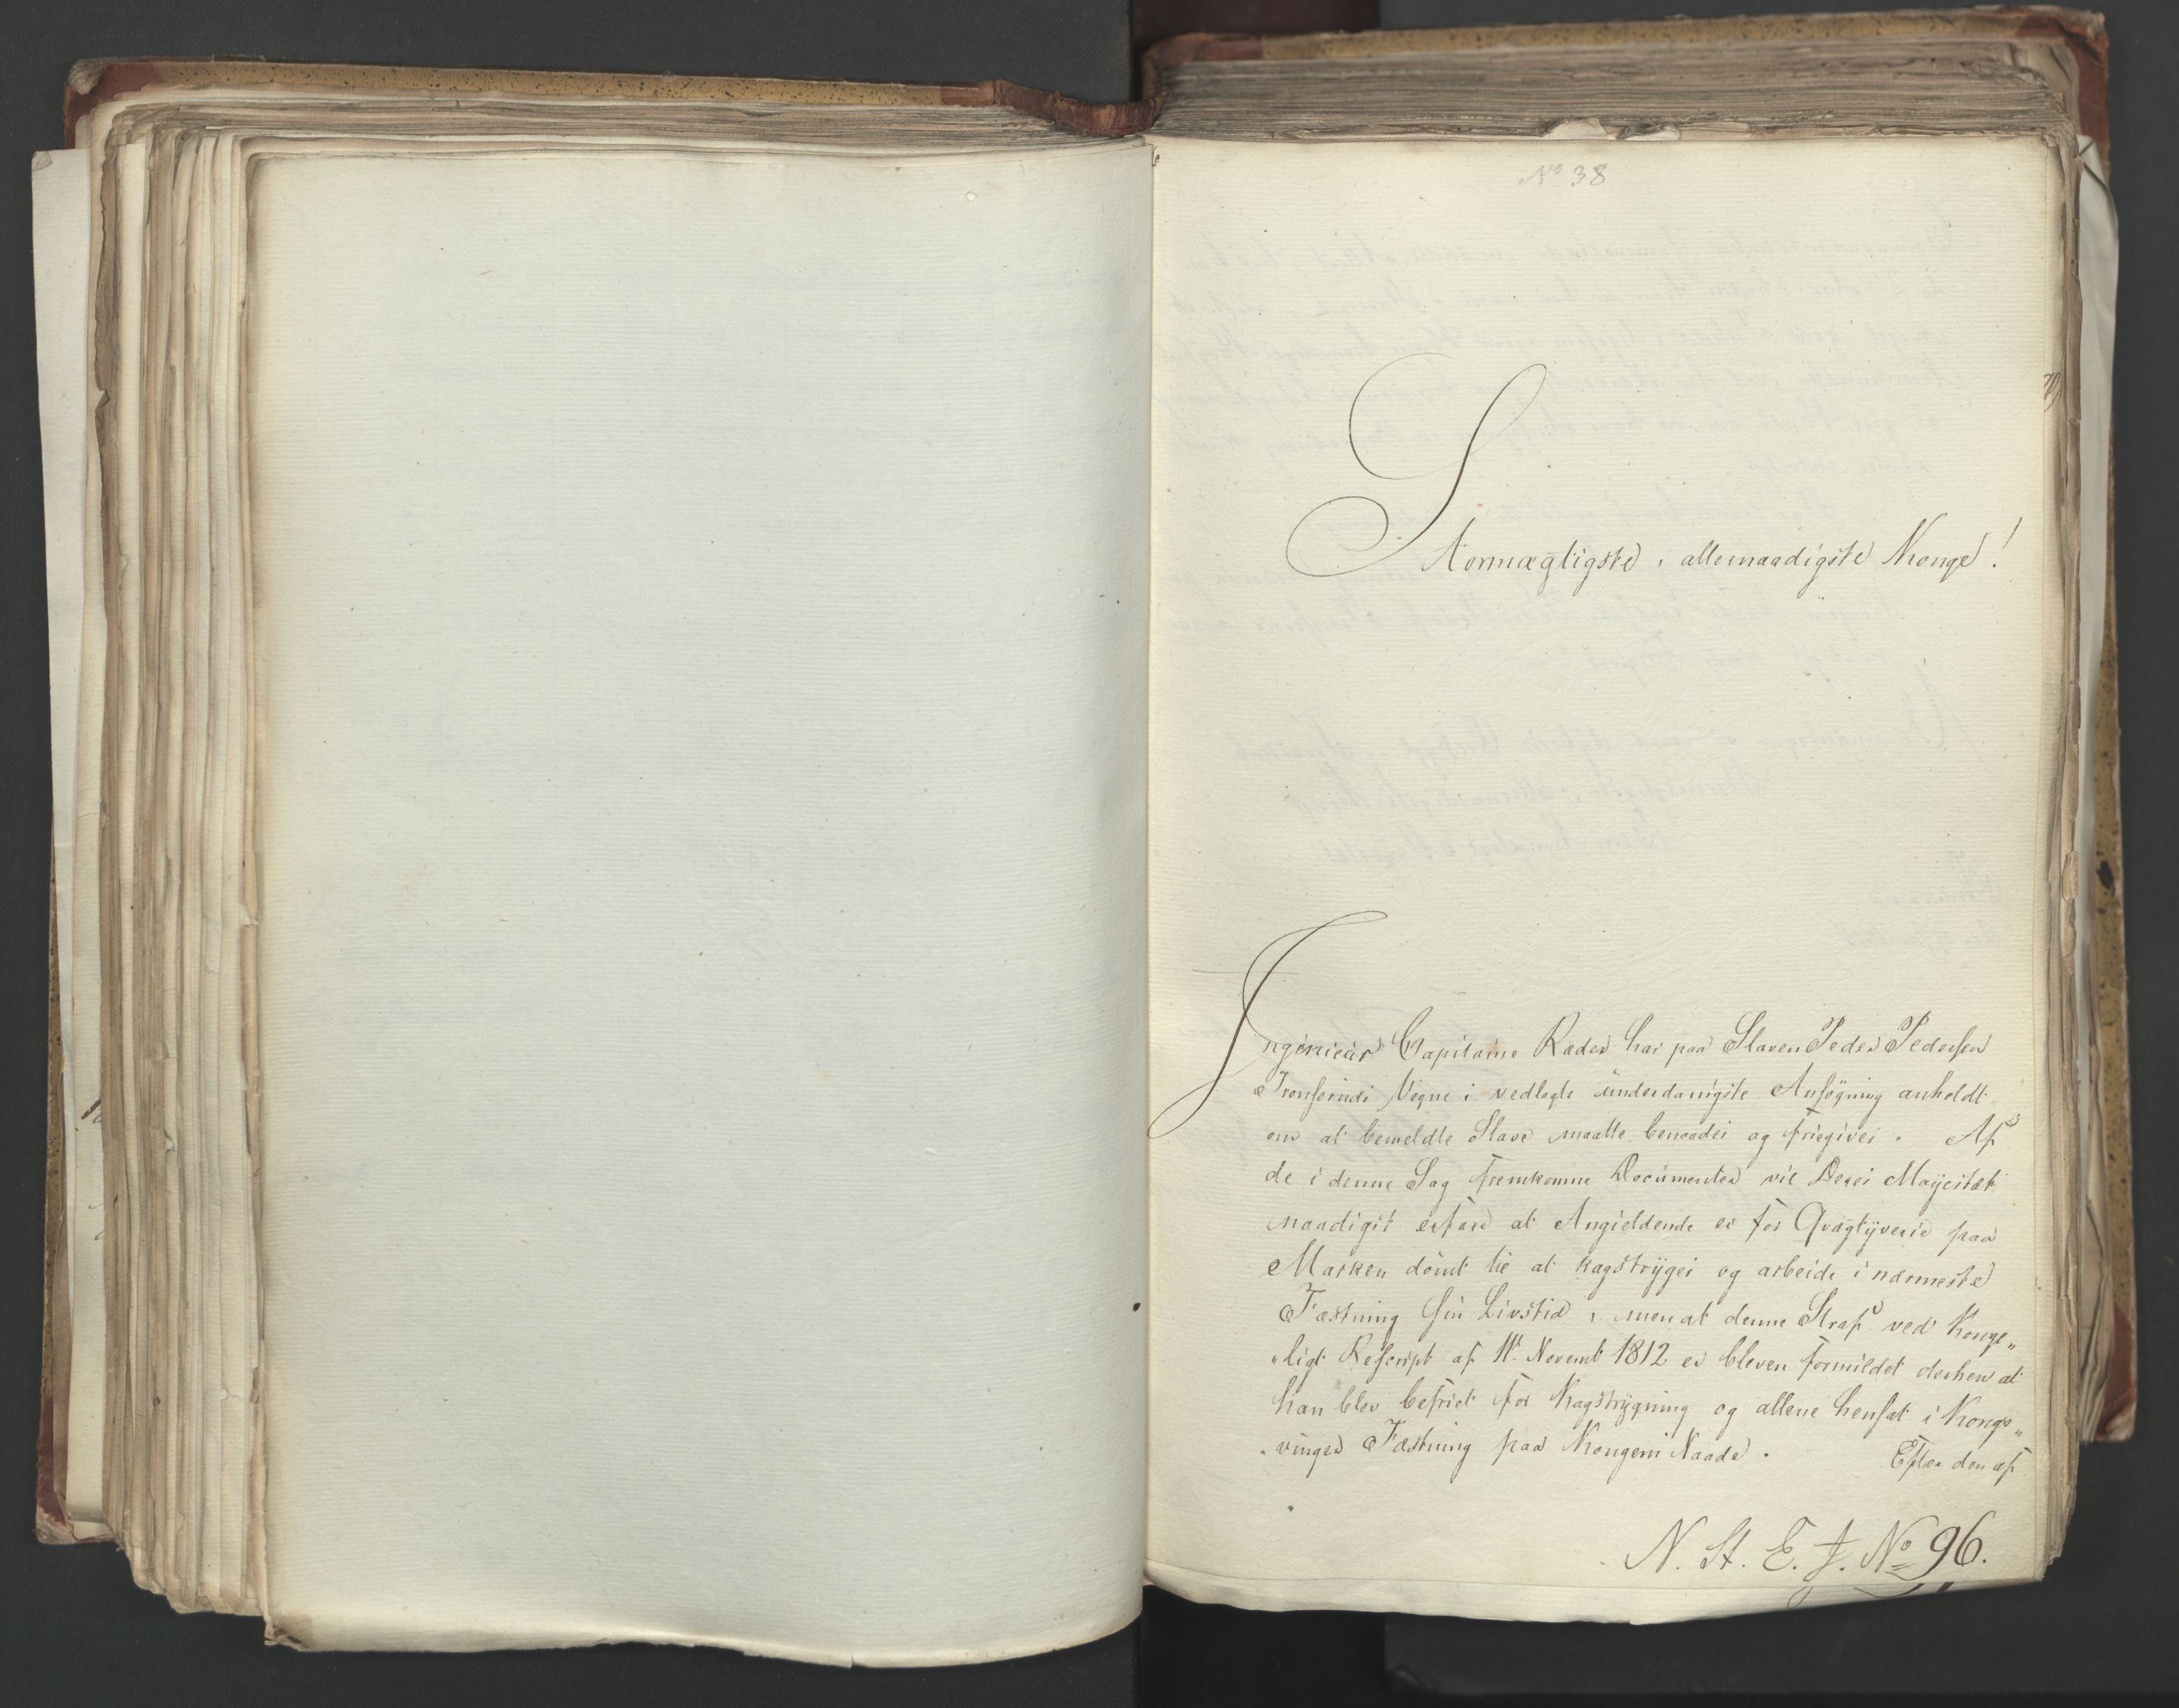 No 38
Stormægtigste, allernaadigste Konge!
Ingenieur Capitaine Ræder har paa Slaven Peder Pedersen
Vegne i vedlagte underdanigste Ansøgning anholdt
om at bemeldte Slave maatte benaades og friegives. Af
de i denne Sag fremkomne Documenter vil Deres Majestæt
naadigst erfare at Angieldende er for Qvægtyverie paa
Marken dømt til at kagstryges og arbeide i nærmeste
Fæstning sin Livstid, men at denne Straf ved Konge„
„ligt Rescript af 11te Novembr 1812 er bleven formildet derhen at
han blev befriet for Kagstrygning og allene hensat i Kongs„
„vinger Fæstning paa Kongens Naade. Efter den af
N. St. E. J. No 96.